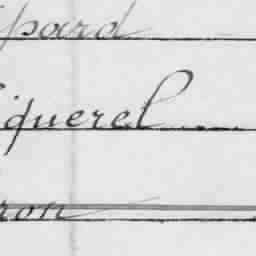 pard
iquerel
ron